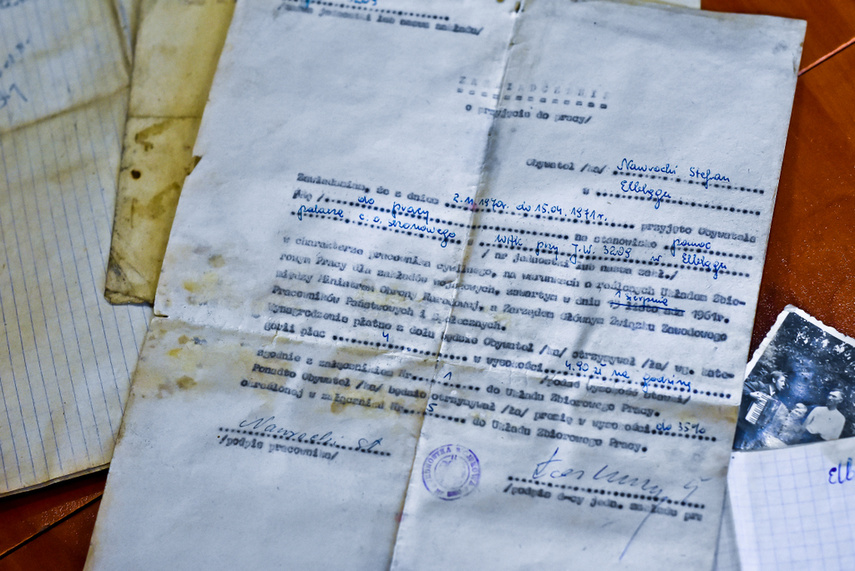 /podpis jednostki lub nazwa zakładu/
ZAŚWIADCZENIE
o przyjęciu do pracy/
Obywatel /ka/ Nawrocki Stefan
w Elblągu
Zawiadamiam, że z dniem 2.11.1970r. do 15.04.1971r. przyjęto Obywatela
/kę/ do pracy na stanowisko pomoc
palacza c.o. sezonowego WAK przy J.W. 3209 w Elblągu
/ nr jednostki lub nazwa zakł./
w charakterze pracownika cywilnego, na warunkach określonych Układem Zbio-
rowym Pracy dla zakładów wojskowych, zawartym w dniu 1 sierpnia 1961r.
między Ministrem Obrony Narodowej, a Zarządem Głównym Związku Zawodowego
Pracowników Państwowych i Społecznych.
Wynagrodzenie płatne z dołu będzie Obywatel /ka/ otrzymywał /ła/ wg. kate-
gorii płac 4 w wysokości 4.90 zł na godzinę
/podać wysokość stawki/
zgodnie z załącznikiem Nr. 1 do Układu Zbiorowego Pracy.
Ponadto Obywatel /ka/ będzie otrzymywał /ła/ premię w wysokości do 35%
określonej w załączniku Nr. 5 do Układu Zbiorowego Pracy.
Nawrocki St
/podpis pracownika/
/podpis d-cy jedn. zakładu pra
Elb